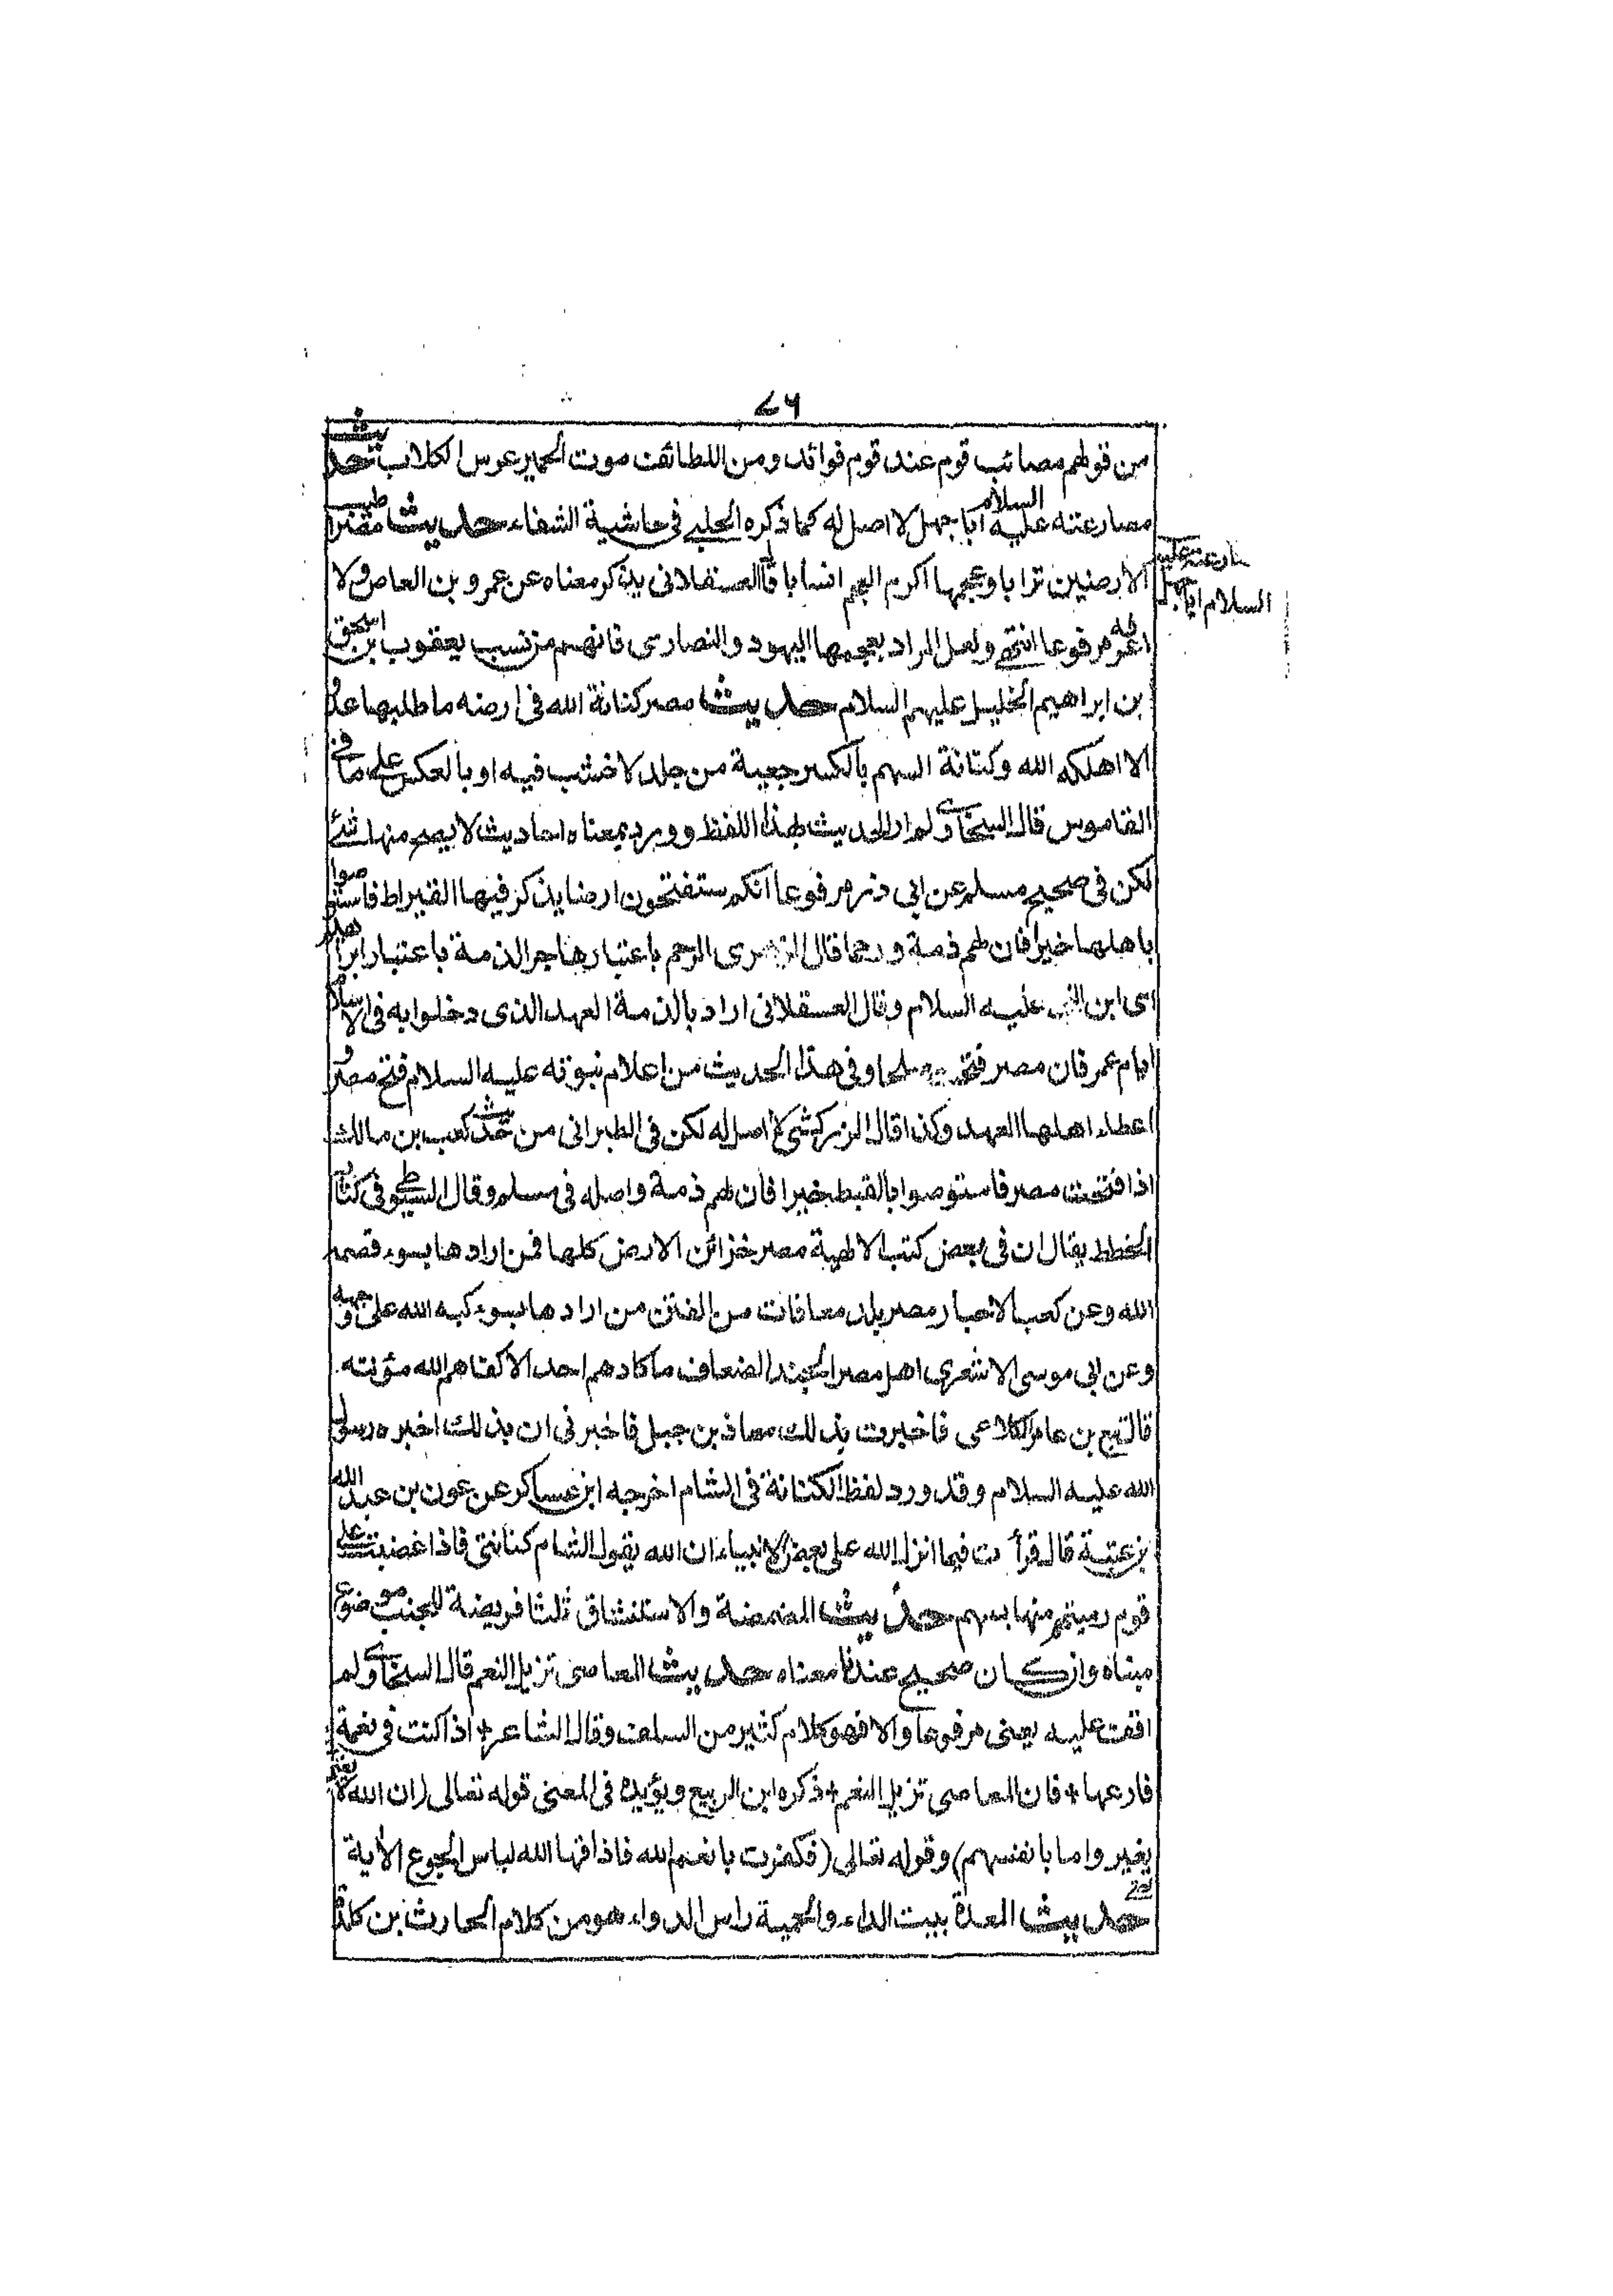 ٧٦
من قولهم مصائب قوم عند قوم فوائد ومن اللطائف موت الحمير عرس الكلاب حديث
مصارعته عليه السلام ابا جهل لا اصل له كما ذكره الحلبي في حاشية الشفاء حديث مصر اطيب
الارضين ترابا وعجمها اكرم العجم انسابا قال العسقلانى يذكر معناه عن عمرو بن العاص ولا
اعرفه مرفوعا انتهى ولعل المراد بعجمها اليهود والنصارى فانهم من نسب يعقوب بن اسحق
بن ابراهيم الخليل عليهم السلام حديث مصر كنانة الله فى ارضه ما طلبها عدو
الا اهلكه الله وكنانة السهم بالكسر جعبة من جلد لا خشب فيه او بالعكس على ما في
القاموس قال السخاوى ولم ار الحديث بهذا اللفظ وورد بمعناه احاديث لا يصح منها شئ
لكن فى صحيح مسلم عن ابى ذر مرفوعا انكم ستفتحون ارضا يذكر فيها القيراط فاستوصوا
باهلها خيرا فان لهم ذمة ورحما قال الزهرى الرحم باعتبار هاجر الذمة باعتبار ابراهيم
اى ابن النبى عليه السلام وقال العسقلانى اراد بالذمة العهد الذى دخلوا به فى الاسلام
ايام عمر فان مصر فتحت صلحا وفى هذا الحديث من اعلام نبوته عليه السلام فتح مصر و
اعطاء اهلها العهد وكذا قال الزركشى لا اصل له لكن فى الطبرانى من حديث كعب بن مالك
اذا فتحت مصر فاستوصوا بالقبط خيرا فان لهم ذمة واصله فى مسلم وقال السيوطى فى كتاب
الخطط يقال ان فى بعض كتب الالهية مصر خزائن الارض كلها فمن ارادها بسوء قصمه
الله وعن كعب الاحبار مصر بلد معافات من الفتن من ارادها بسوء كبه الله على وجهه
وعن ابى موسى الاشعرى اهل مصر الجند الضعاف ما كادهم احد الا كفاهم الله مؤنته
قال تبيع بن عامر الكلاعى فاخبرت بذلك معاذ بن جبل فاخبرنى ان بذلك اخبره رسول
الله عليه السلام وقد ورد لفظ الكنانة فى الشام اخرجه ابن عساكر عن عون بن عبد الله
بن عتبة قال قرأت فيما انزل الله على بعض الانبياء ان الله يقول الشام كنانتى فاذا غضبت على
قوم رميتهم منها بسهم حديث المضمضة والاستنشاق ثلثا فريضة للجنب موضوع
مبناه وان كان صحيح عندنا معناه حديث المعاصى تزيل النعم قال السخاوى ولم
اقف عليه يعنى مرفوعا والا فهو كلام كثير من السلف وقال الشاعر + اذا كنت فى نعمة
فارعها + فان المعاصى تزيل النعم + ذكره ابن الربيع ويؤيده فى المعنى قوله تعالى (ان الله لا يغير
يغيروا ما بانفسهم) وقوله تعالى (فكفرت بانعم الله فاذاقها الله لباس الجوع الأية
حديث المعدة بيت الداء والحمية راس الدواء هو من كلام الحارث بن كلدة
السلام ابا جهل